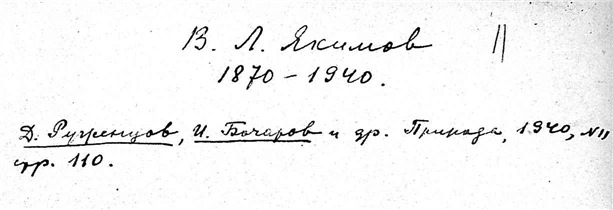 В. Л. Якимов ||
1870 – 1940.
Д. Руженцов, И. Бочаров и др. Природа, 1940, № 11
стр. 110.